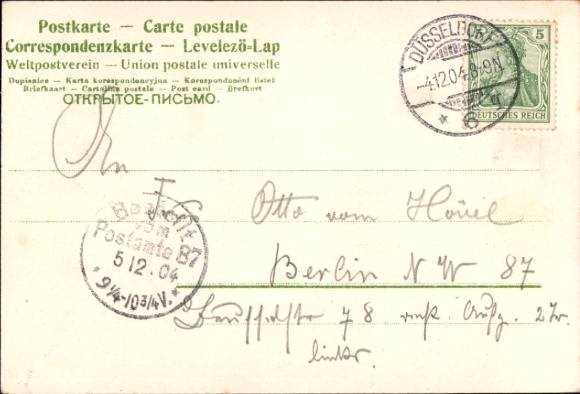 Postkarte — Carte postale
Correspondenzkarte — Levelező-Lap
Weltpostverein — Union postale universelle
Dopisnice — Karta korespondencyjna — Korespondenční lístek
Briefkaart — Cartolina postale — Post card — Brefkort
ОТКРЫТОЕ-ПИСЬМО.
DÜSSELDORF
-4.12.04.8-9N
* 6
5
DEUTSCHES REICH
An
Otto vom Hövel
Bestellt
vom
Postamte 87
5 12. 04
*9¼-10¾V.*
Berlin NW 87
78 Aufg. 2 Tr.
links.